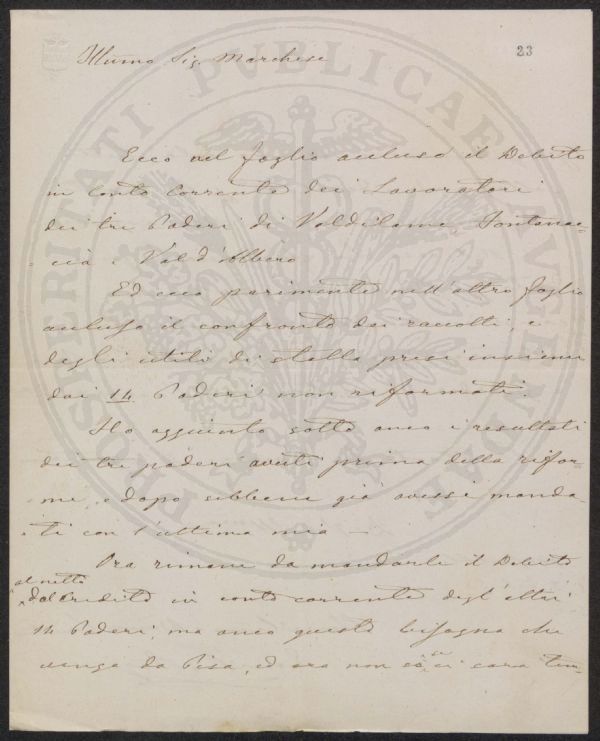 23
Illumo Sig. Marchese
Ecco nel foglio accluso il Debito
in Conto Corrente dei Lavoratori
dei tre Poderi di Valdilame, Fontanac=
=cià e Val d'Albero
Ed ecco parimente nell'altro foglio
accluso il confronto dei raccolti, e
degli utili di stalla presi insieme
dai 14 Poderi non riformati.
Ho aggiunto sotto anco i resultati
dei tre poderi avuti prima della rifor=
=me, e dopo sebbene già avessi manda
=ti con l'ultima mia —
Ora rimane da mandarle il Debito
al netto
dal credito in conto corrente degl'altri
14 Poderi, ma anco questo bisogna che
venga da Pisa, ed ora non so se ci sarà tem-
PROSPERITATI PVBLICAE AVGENDAE